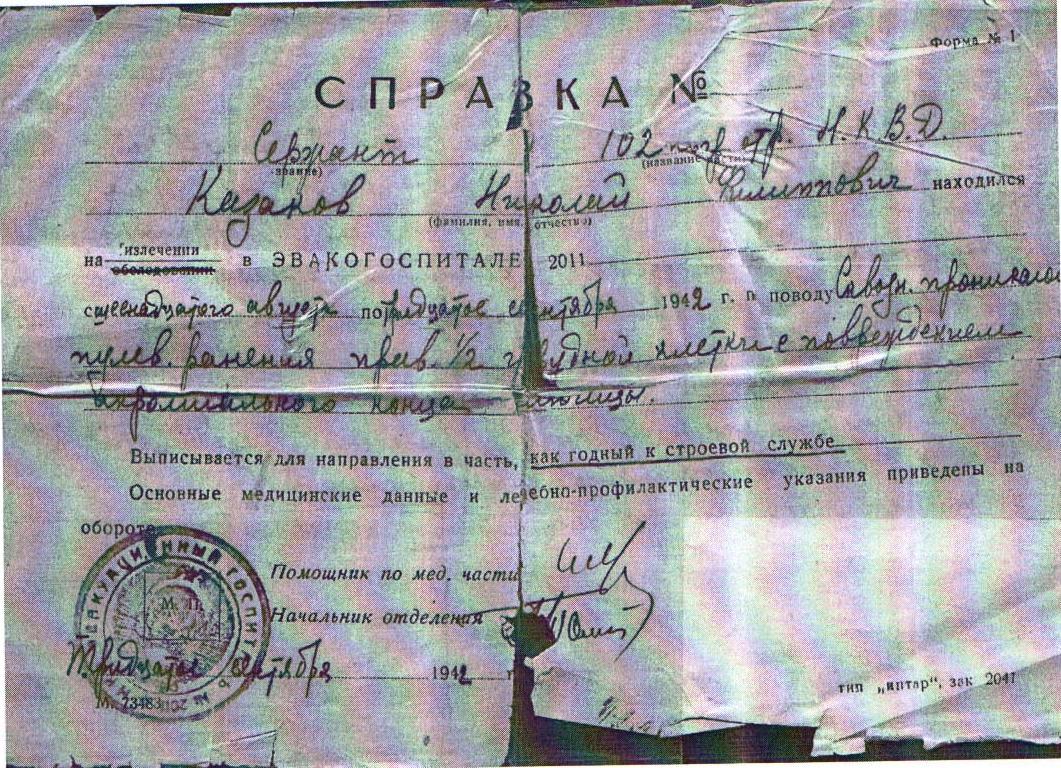 Форма № 1
СПРАВКА №
Сержант 102 погр. отр. Н.К.В.Д.
(звание) (название части)
Казаков Николай Филиппович находился
(фамилия, имя, отчество)
на излечении
обследовании в ЭВАКОГОСПИТАЛЕ 2011
с августа по тридцатое сентября 1942 г. п поводу проникающ
пулев. ранения прав. 1/2 грудной клетки с повреждением
акромиального конца ключицы.
Выписывается для направления в часть, как годный к строевой службе
Основные медицинские данные и лечебно-профилактические указания приведены на
обороте
Помощник по мед. части
М. П.
Начальник отделения
ЭВАКУАЦИОННЫЙ ГОСПИТАЛЬ
Тридцатое сентября 1942 г.
М. 73483
тип „янтар“, зак 2041